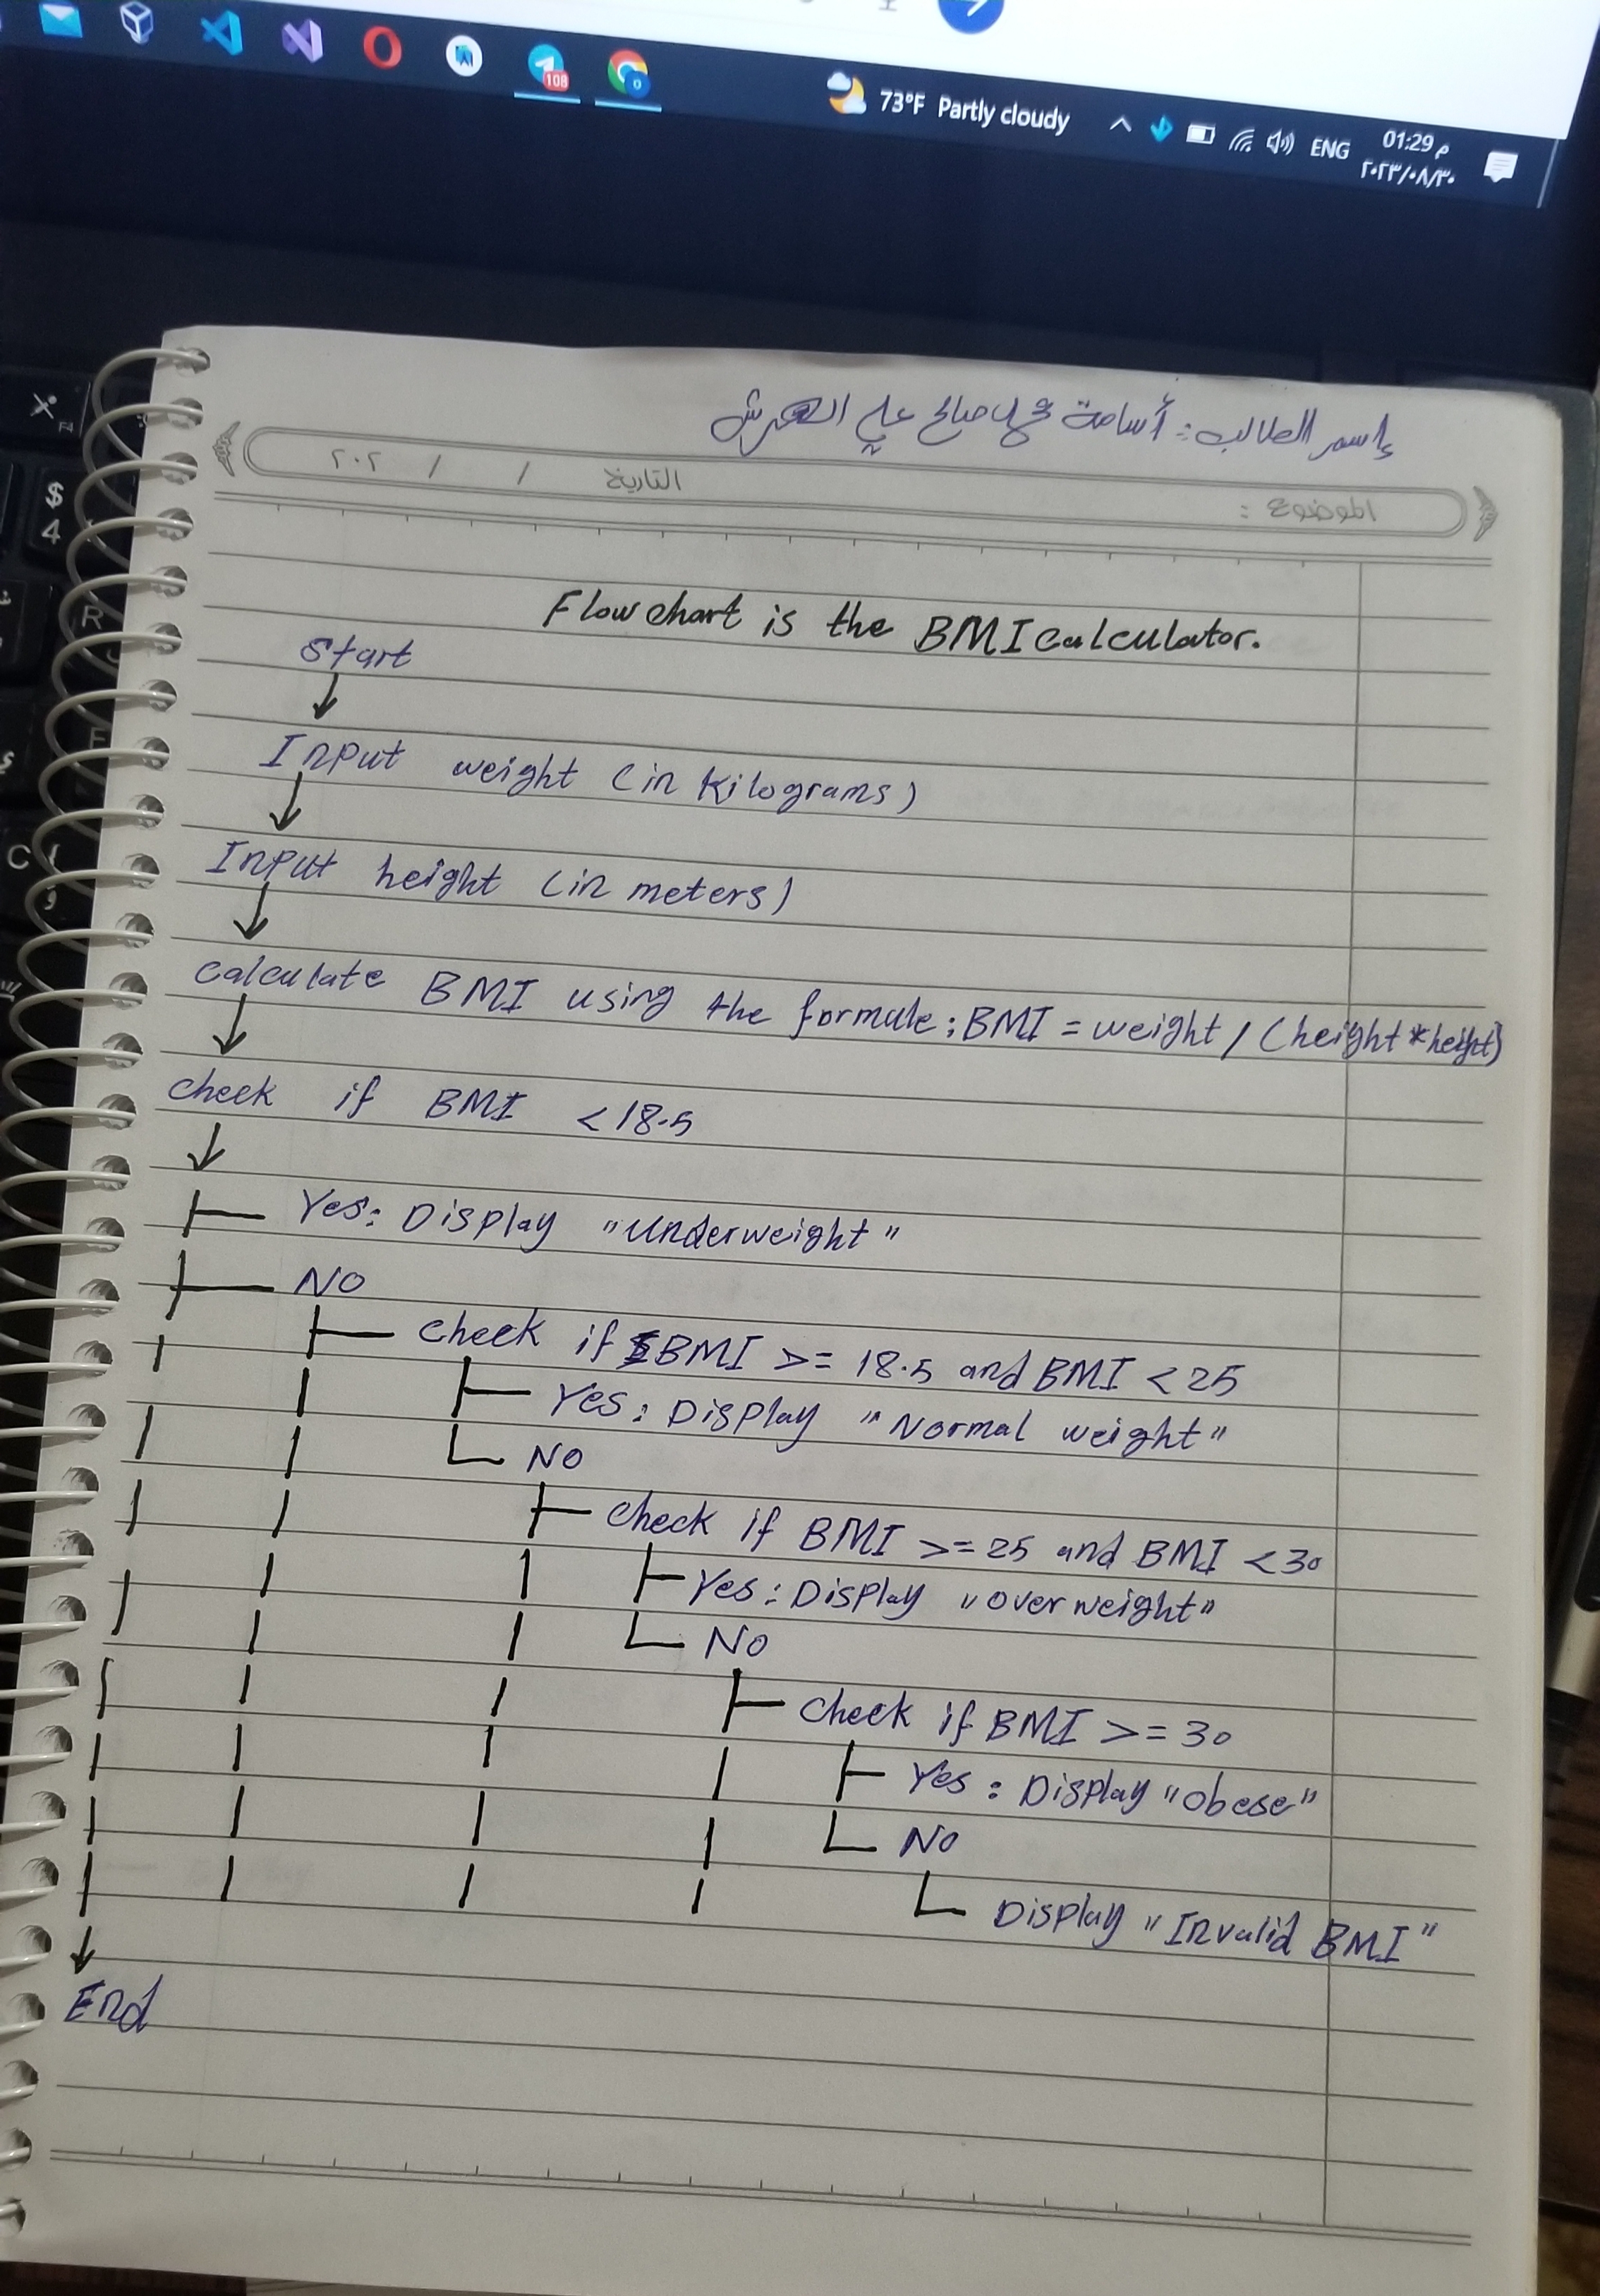 108
73°F Partly cloudy
ENG
01:29 م
٢٠٢٣/٠٨/٣٠
F4
$
4
R
F
C
إسم الطالب: أسامة محمد صالح علي
التاريخ / / ٢٠٢
الموضوع :
Flowchart is the BMI calculator.
Start
Input weight (in Kilograms)
Input height (in meters)
calculate BMI using the formule: BMI = weight / (height * height)
check if BMI < 18.5
Yes: Display "Underweight"
NO
check if BMI >= 18.5 and BMI < 25
Yes: Display "Normal weight"
NO
check if BMI >= 25 and BMI < 30
Yes: Display "over weight"
NO
check if BMI >= 30
Yes: Display "obese"
NO
Display "Invalid BMI"
End